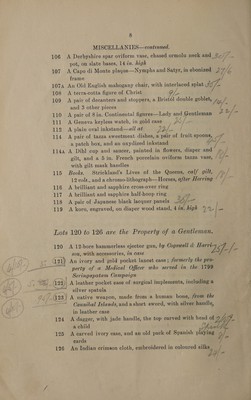 8
MISCELLANIES—continued.
106 A Derbyshire spar oviform vase, chased ormolu neck and
pot, on slate bases, 14 in. high
107 A Capo di Monte plaque—Nymphs and Satyr, in ebonized
frame
107A An Old English mahogany chair, with interlaced splat
108 A terra-cotta figure of Christ
109 A pair of decanters and stoppers, a Bristol double goblet,
and 2 other pieces
110 A pair of 8 in. Continental figures—Lady and Gentleman
111 A Geneva keyless watch, in gold case
112 A plain oval inkstand—all at
114 A pair of tazza sweetmeat dishes, a pair of fruit spoons,
a patch box, and an oxydized inkstand
114A A Dihl cup and saucer, painted in flowers, diaper and
gilt, and a 5 in. French porcelain oviform tazza vase,
with gilt mask handles
115 Books. Strickland's Lives of the Queens, calf gilt,
12 vols., and a chromo-lithograph—Horses, after Herring
116 A brilliant and sapphire cross-over ring
117 A brilliant and sapphire half-hoop ring
118 A pair of Japanese black lacquer panels
119 A horn, engraved, on diaper wood stand, 4 in. high
Lots 120 to 126 are the Property of a Gentleman.
120 A 12-bore hammerless ejector gun, by Cogswell & Harri-
son, with accessories, in case
121 An ivory and gold pocket lancet case; formerly the pro-
perty of a Medical Officer who served in the 1799
Seringapatam Campaign
122 A leather pocket case of surgical implements, including a
silver spatula
123 A native weapon, made from a human bone, from the
Cannibal Islands, and a short sword, with silver handle,
in leather case
124 A dagger, with jade handle, the top carved with head of
a child
125 A carved ivory case, and an old pack of Spanish playing
cards
126 An Indian crimson cloth, embroidered in coloured silks